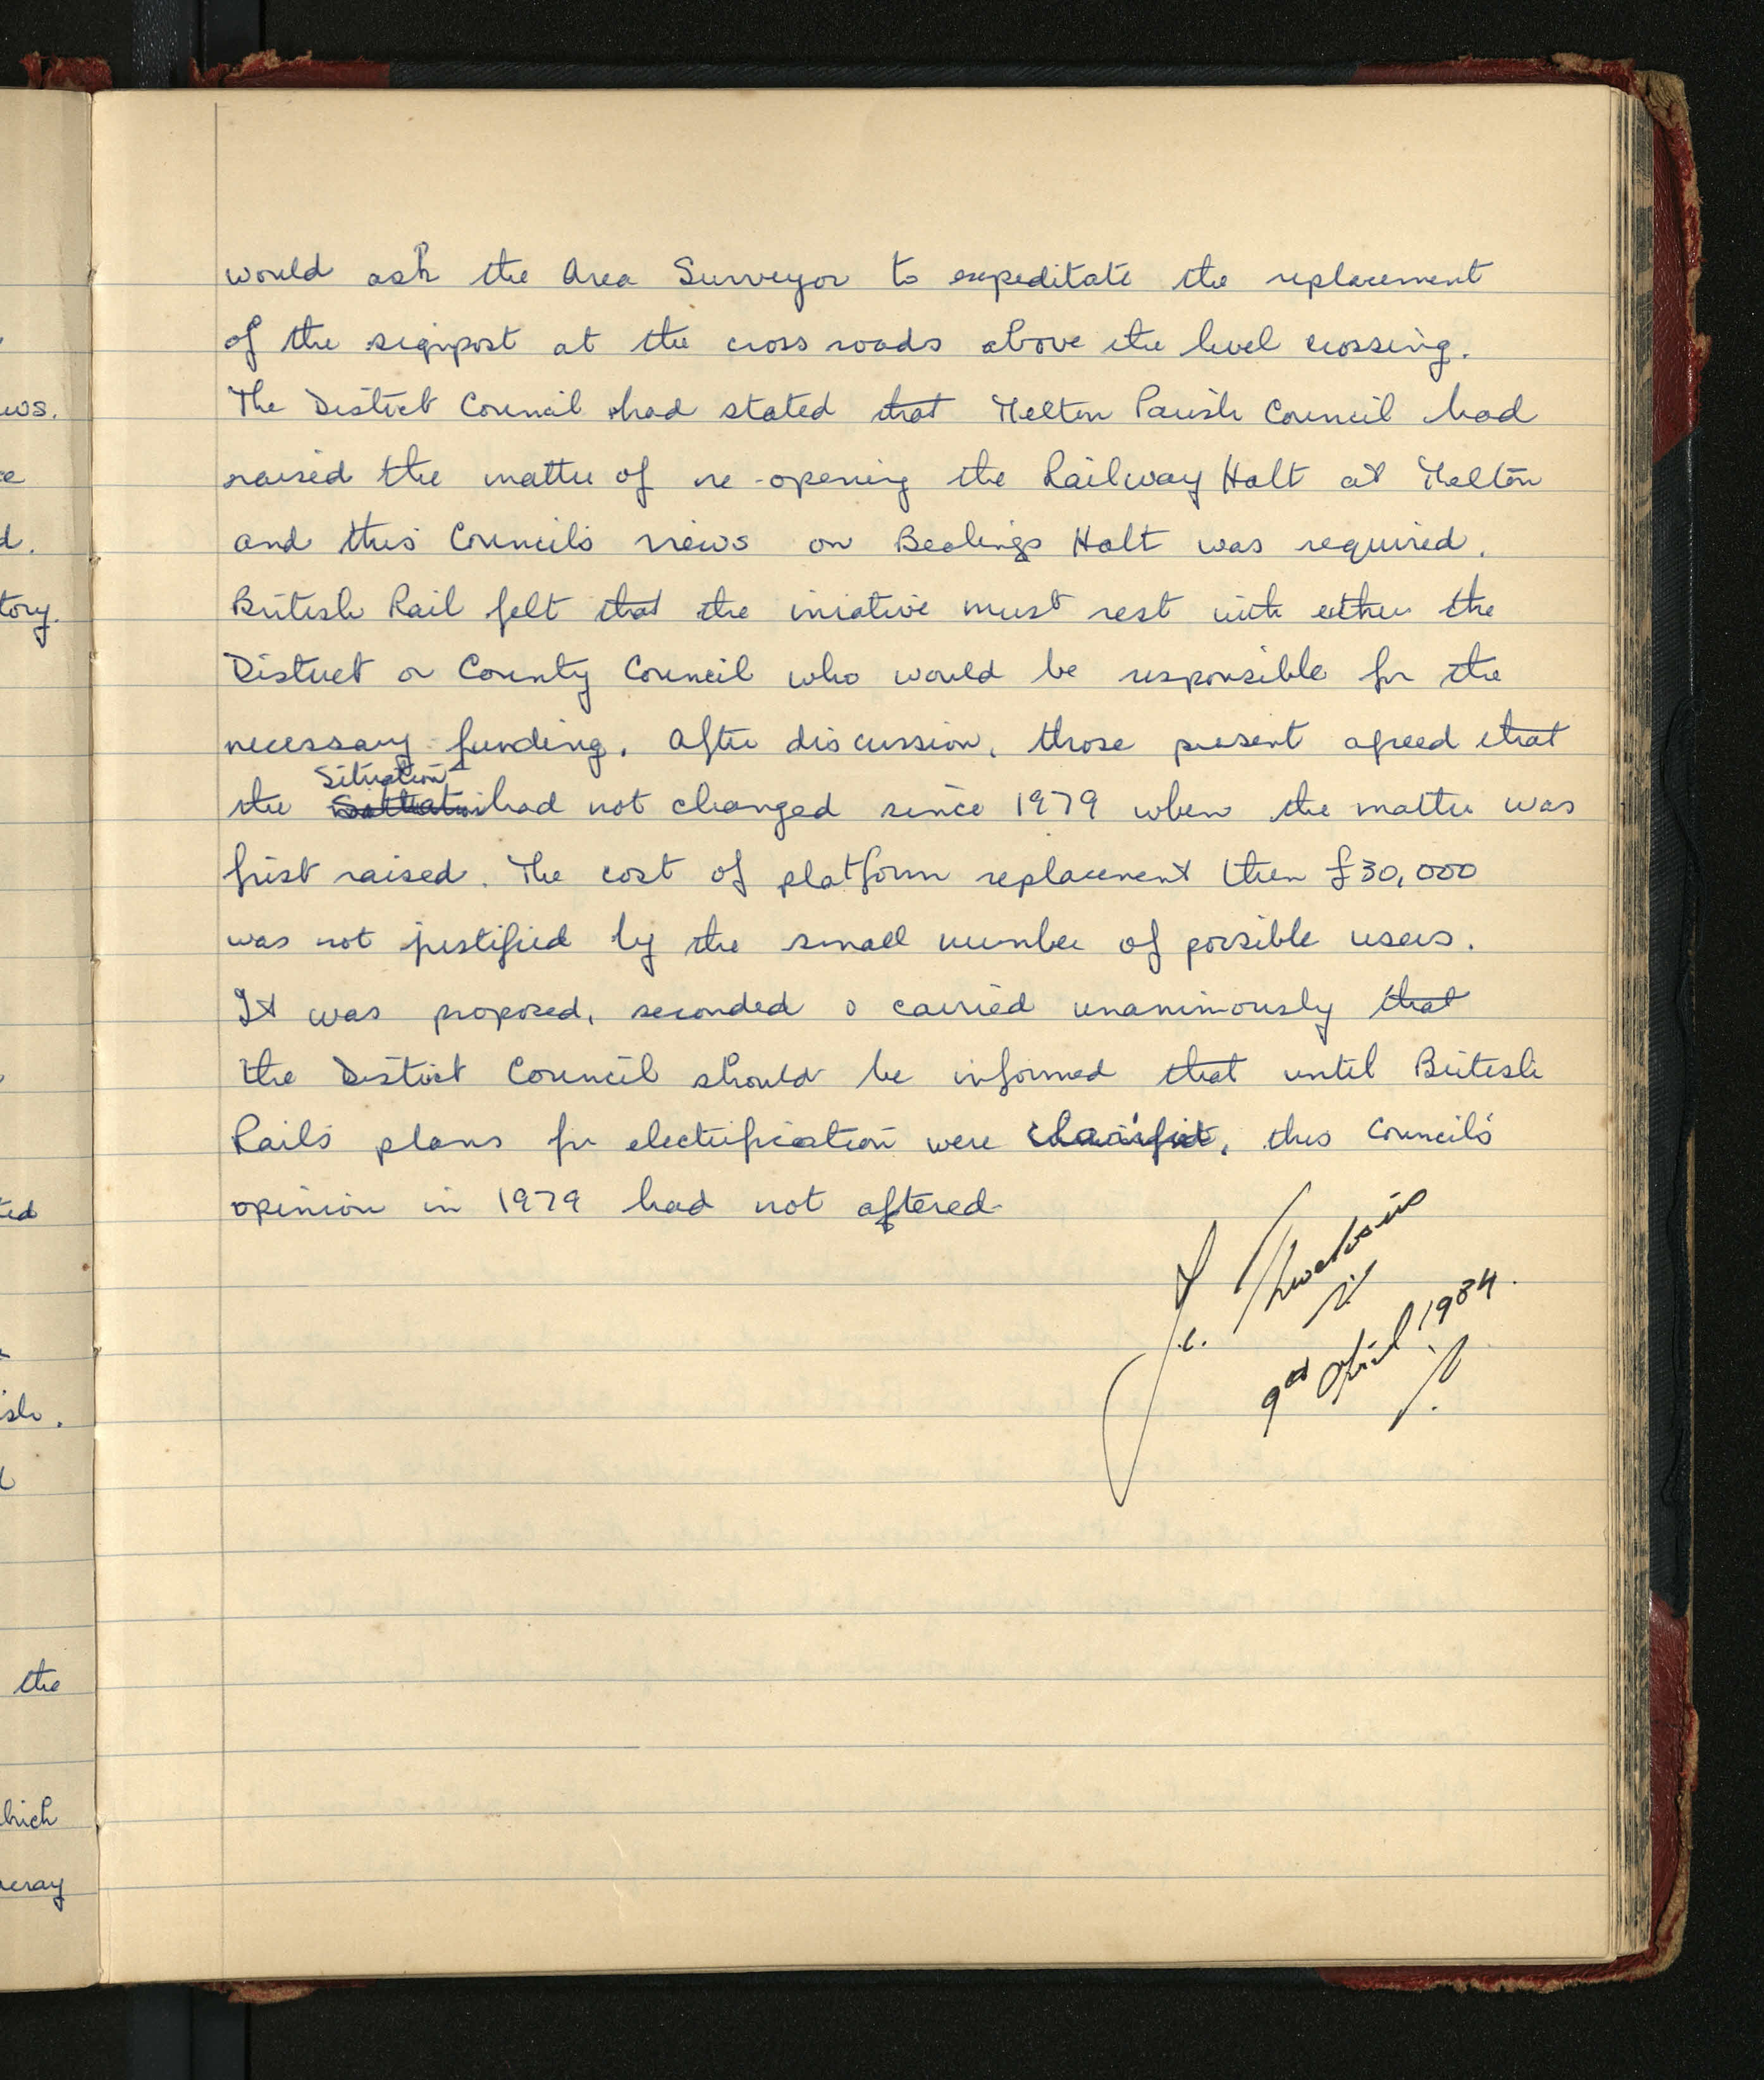 would ask the Area Surveyor to expeditate the replacement
of the signpost at the cross roads above the level crossing.
The District Council had stated that Melton Parish Council had
raised the matter of re-opening the Railway Halt at Melton
and this Council's views on Bealings Halt was required.
British Rail felt that the iniative must rest with either the
District or County Council who would be responsible for the
necessary funding. After discussion, those present agreed that
the Situation had not changed since 1979 when the matter was
first raised. The cost of platform replacement then £30,000
was not justified by the small number of possible users.
It was proposed, seconded & carried unanimously that
the District Council should be informed that until British
Rail's plans for electrification were clarified, this Council's
opinion in 1979 had not altered
9th April 1984.
ws.
e
d.
tory.
ted
ish.
the
hich